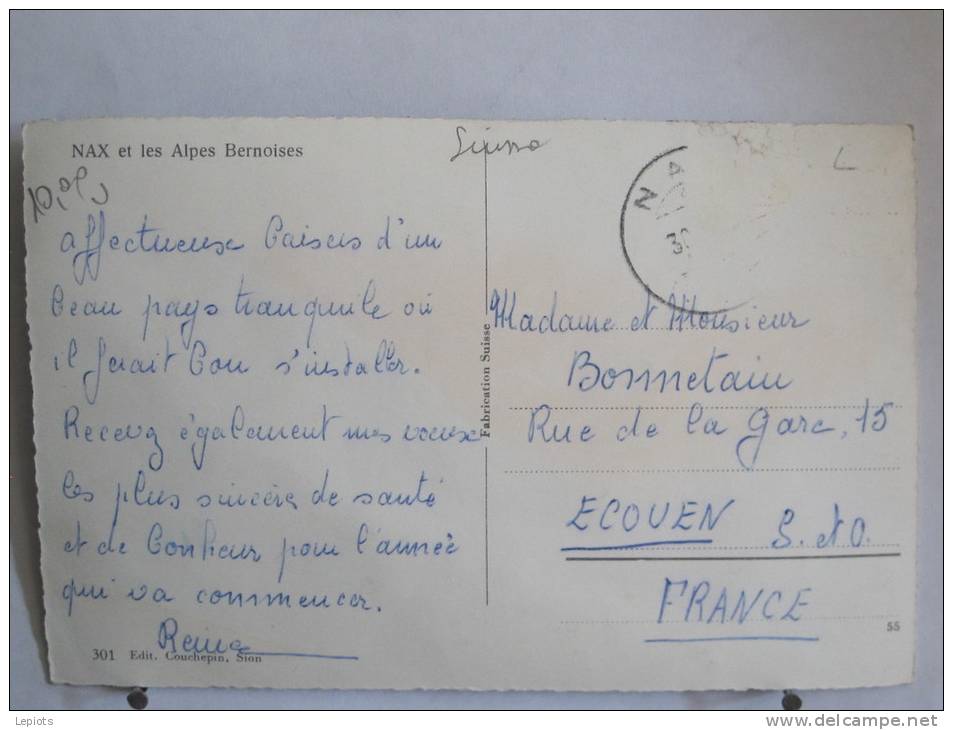 NAX et les Alpes Bernoises
affectueux baisers d'un
beau pays tranquile où
il ferait bon s'installer.
Recevez également mes voeux
les plus sincère de santé
et de bonheur pour l'année
qui va commencer.
301 Edit. Couchepin, Sion
Fabrication Suisse
Madame et Monsieur
Bonnetain
Rue de la Gare, 15
ECOUEN S. et O.
FRANCE
55
Lepiots
www.delcampe.net